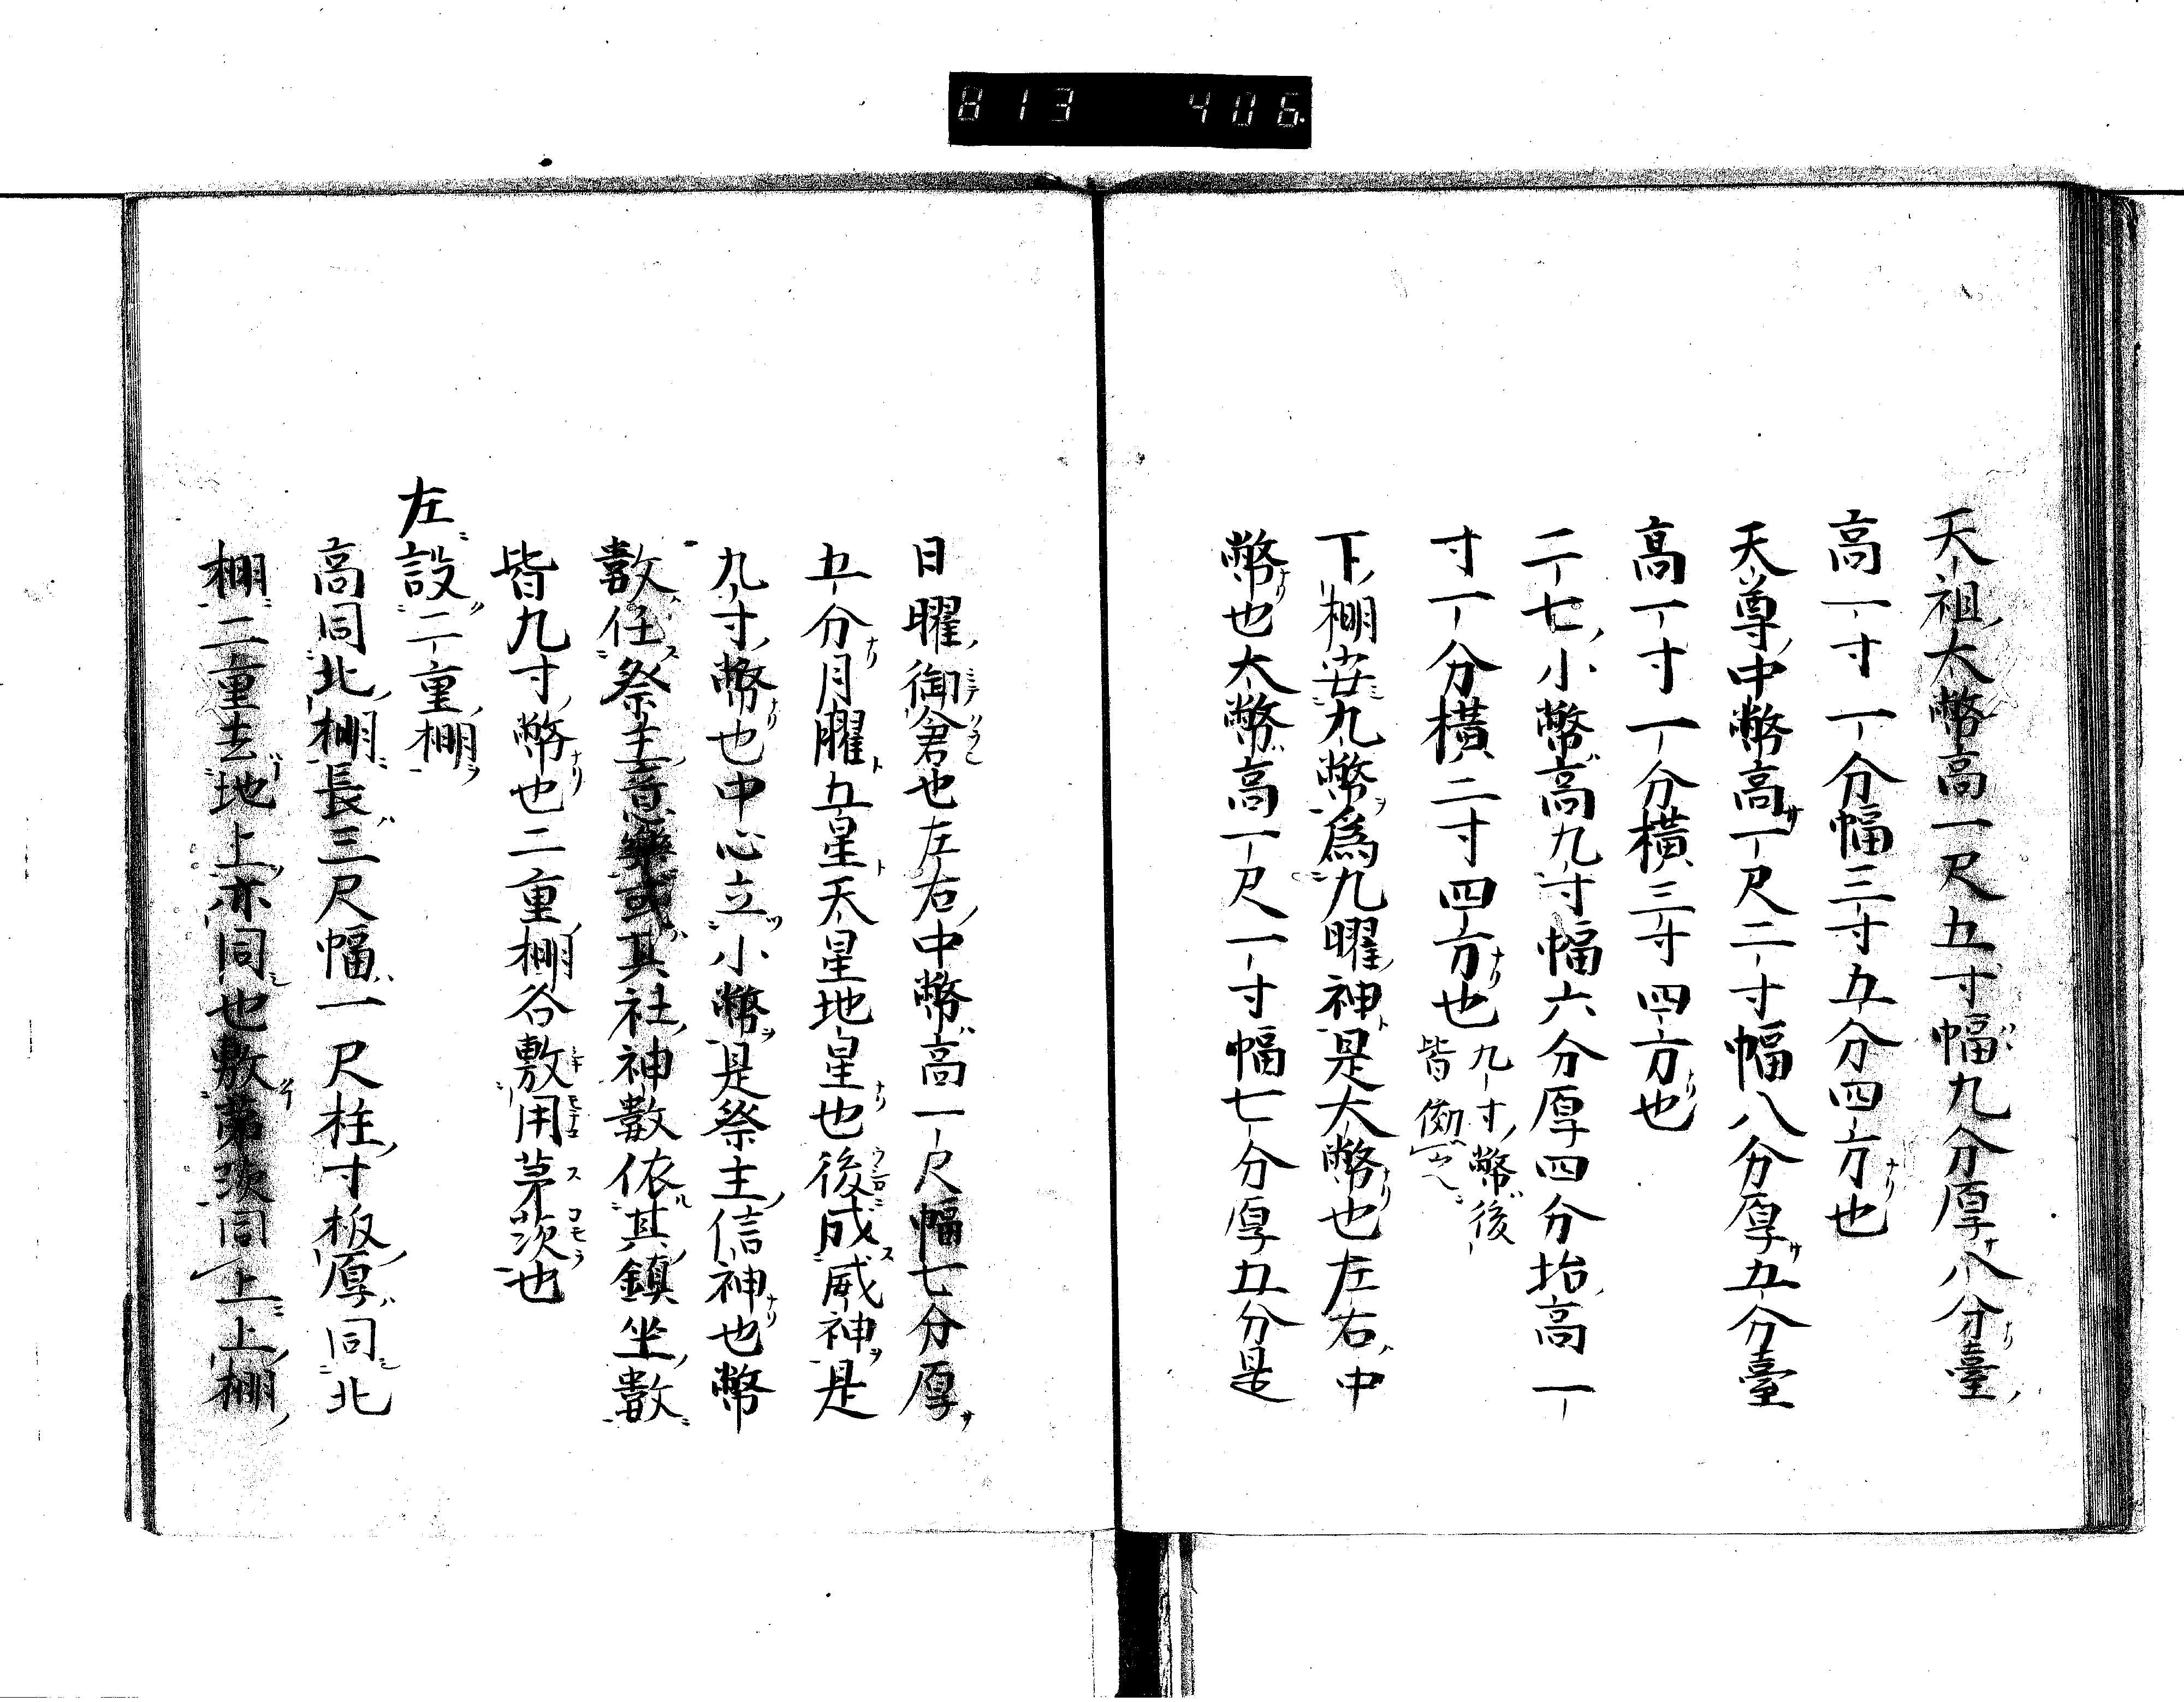 813 406
天祖太幣高一尺五寸幅九分厚八分臺
高一寸一分幅三寸五分四方也
天尊中幣高一尺二寸幅八分厚五分臺
高一寸一分横三寸四方也
二七小幣高九寸幅六分厚四分抬高一
寸一分横二寸四方也九寸幣後
皆
下棚安九幣為九曜神是大幣也左右中
幣也大幣高一尺一寸幅七分厚五分是
日曜御倉也左右中幣高一尺幅七分厚
五分月曜五星天星地星也後成威神是
九寸幣也中心立小幣是祭主信神也幣
數任祭主意樂或其社神數依其鎮坐數
皆九寸幣也二重棚谷敷用茅茨也
左設二重棚
高同北棚長三尺幅一尺柱寸板厚同北
棚二重去地上亦同也敷茅茨同上上棚